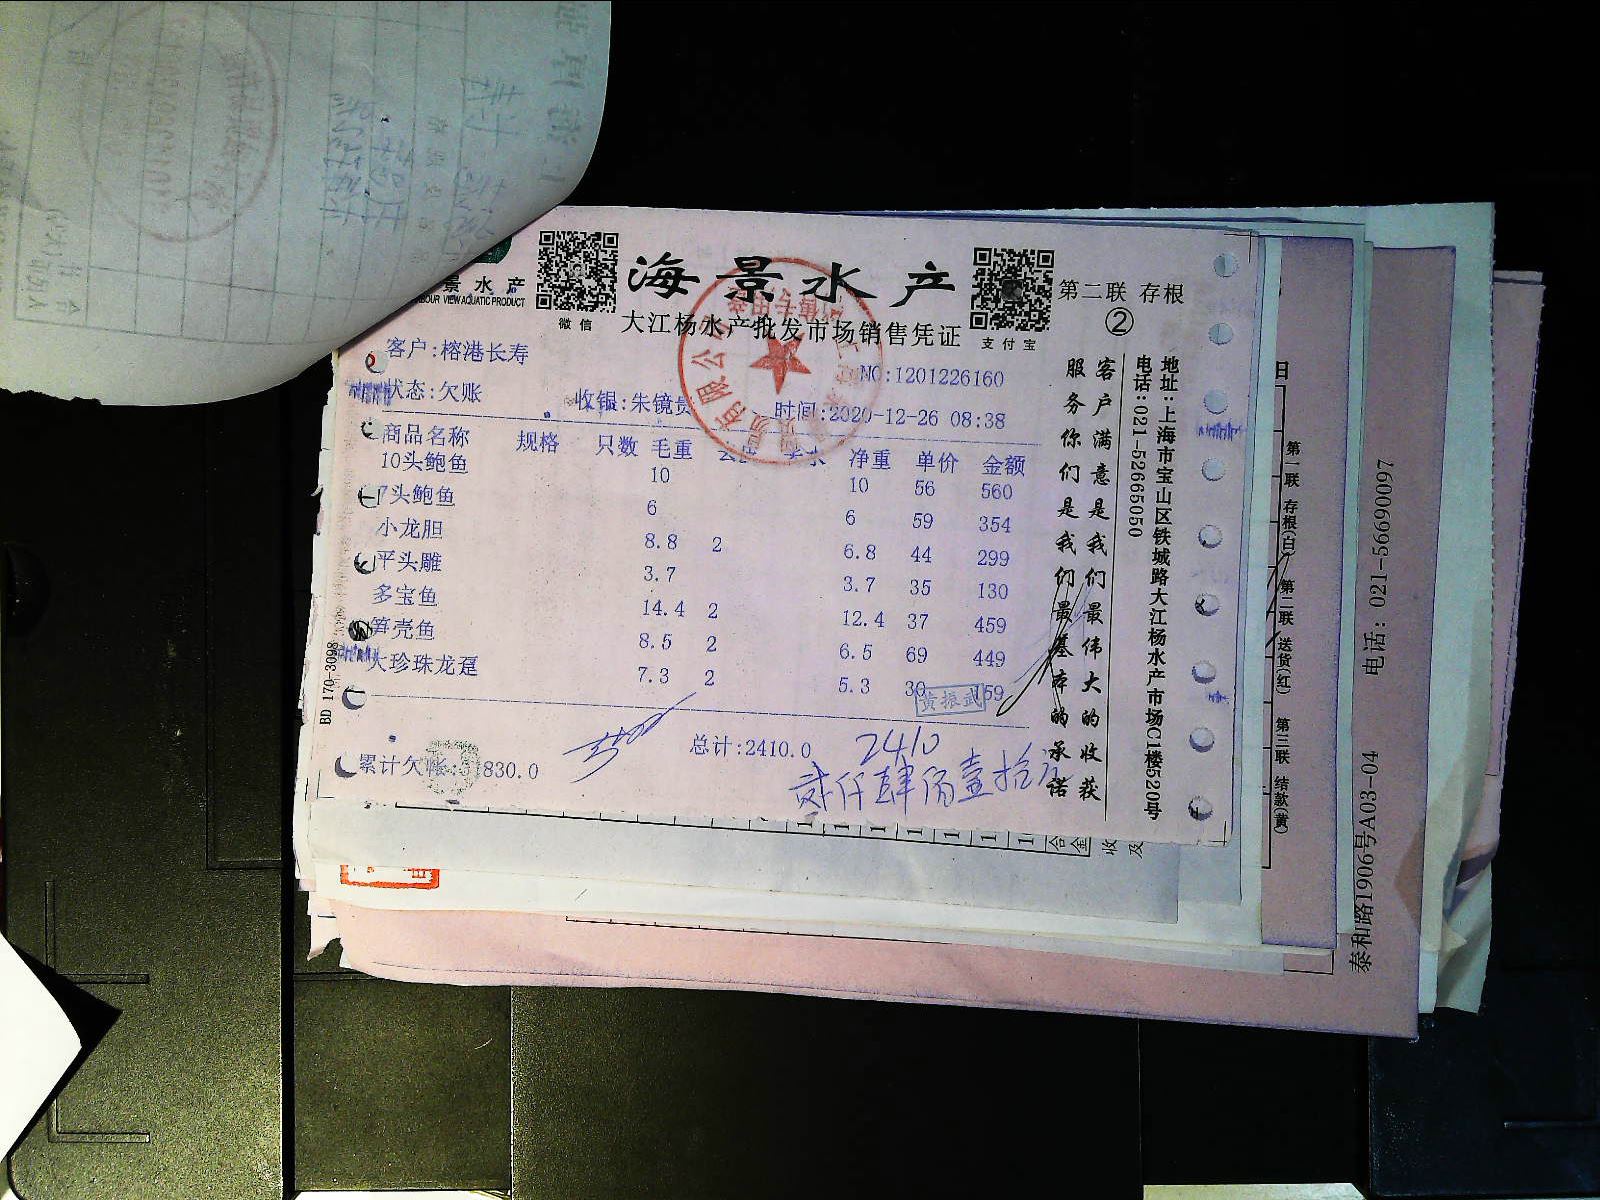 景水产
海景水产
第二联 存根
②
微信
大江杨水产批发市场销售凭证
支付宝
客户:榕港长寿
NO:1201226160
状态:欠账 收银:朱镜贵 时间:2020-12-26 08:38
商品名称 规格 只数 毛重 净重 单价 金额
10头鲍鱼 10 10 56 560
7头鲍鱼 6 6 59 354
小龙胆 8.8 2 6.8 44 299
平头雕 3.7 3.7 35 130
多宝鱼 14.4 2 12.4 37 459
笋壳鱼 8.5 2 6.5 69 449
大珍珠龙趸 7.3 2 5.3 30 159
黄振武
总计:2410.0
2410
贰仟肆佰壹拾元
累计欠帐: 830.0
BD 170-3098
客户满意是我们最伟大的收获
服务你们是我们最基本的承诺
地址:上海市宝山区铁城路大江杨水产市场C1楼520号
电话:021-52665050
第一联 存根(白) 第二联 送货(红) 第三联 结款(黄)
泰和路1906号A03-04 电话:021-56690097